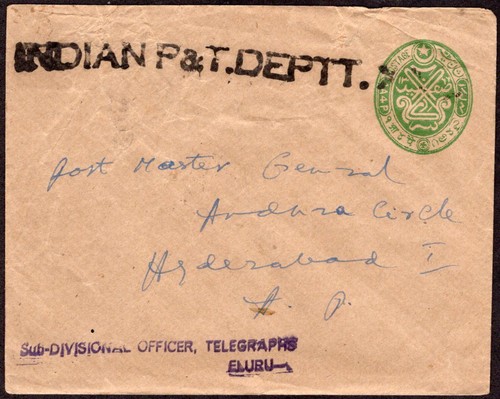 INDIAN P&T. DEPTT.
POSTAGE
Post Master General
Andhra Circle
Hyderabad I
A. P.
Sub-DIVISIONAL OFFICER, TELEGRAPHS
ELURU